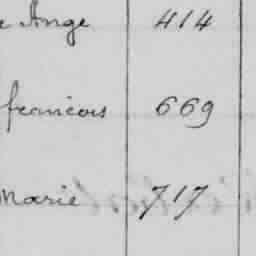 Ange 414
francois 669
Marie 717